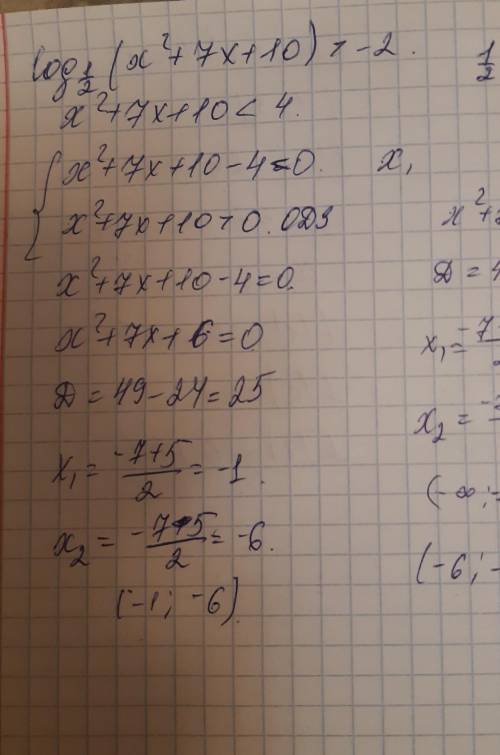 log₁/₂ (x²+7x+10) > -2.
x²+7x+10 < 4.
{ x²+7x+10-4<0.
x²+7x+10>0. ОДЗ
x²+7x+10-4=0.
x²+7x+6=0
Д = 49-24=25
x₁ = (-7+5)/2 = -1.
x₂ = (-7-5)/2 = -6.
(-1; -6)
1/2
x₁
x²+
Д = 4
x₁ = -7
x₂ =
(-∞;
(-6;